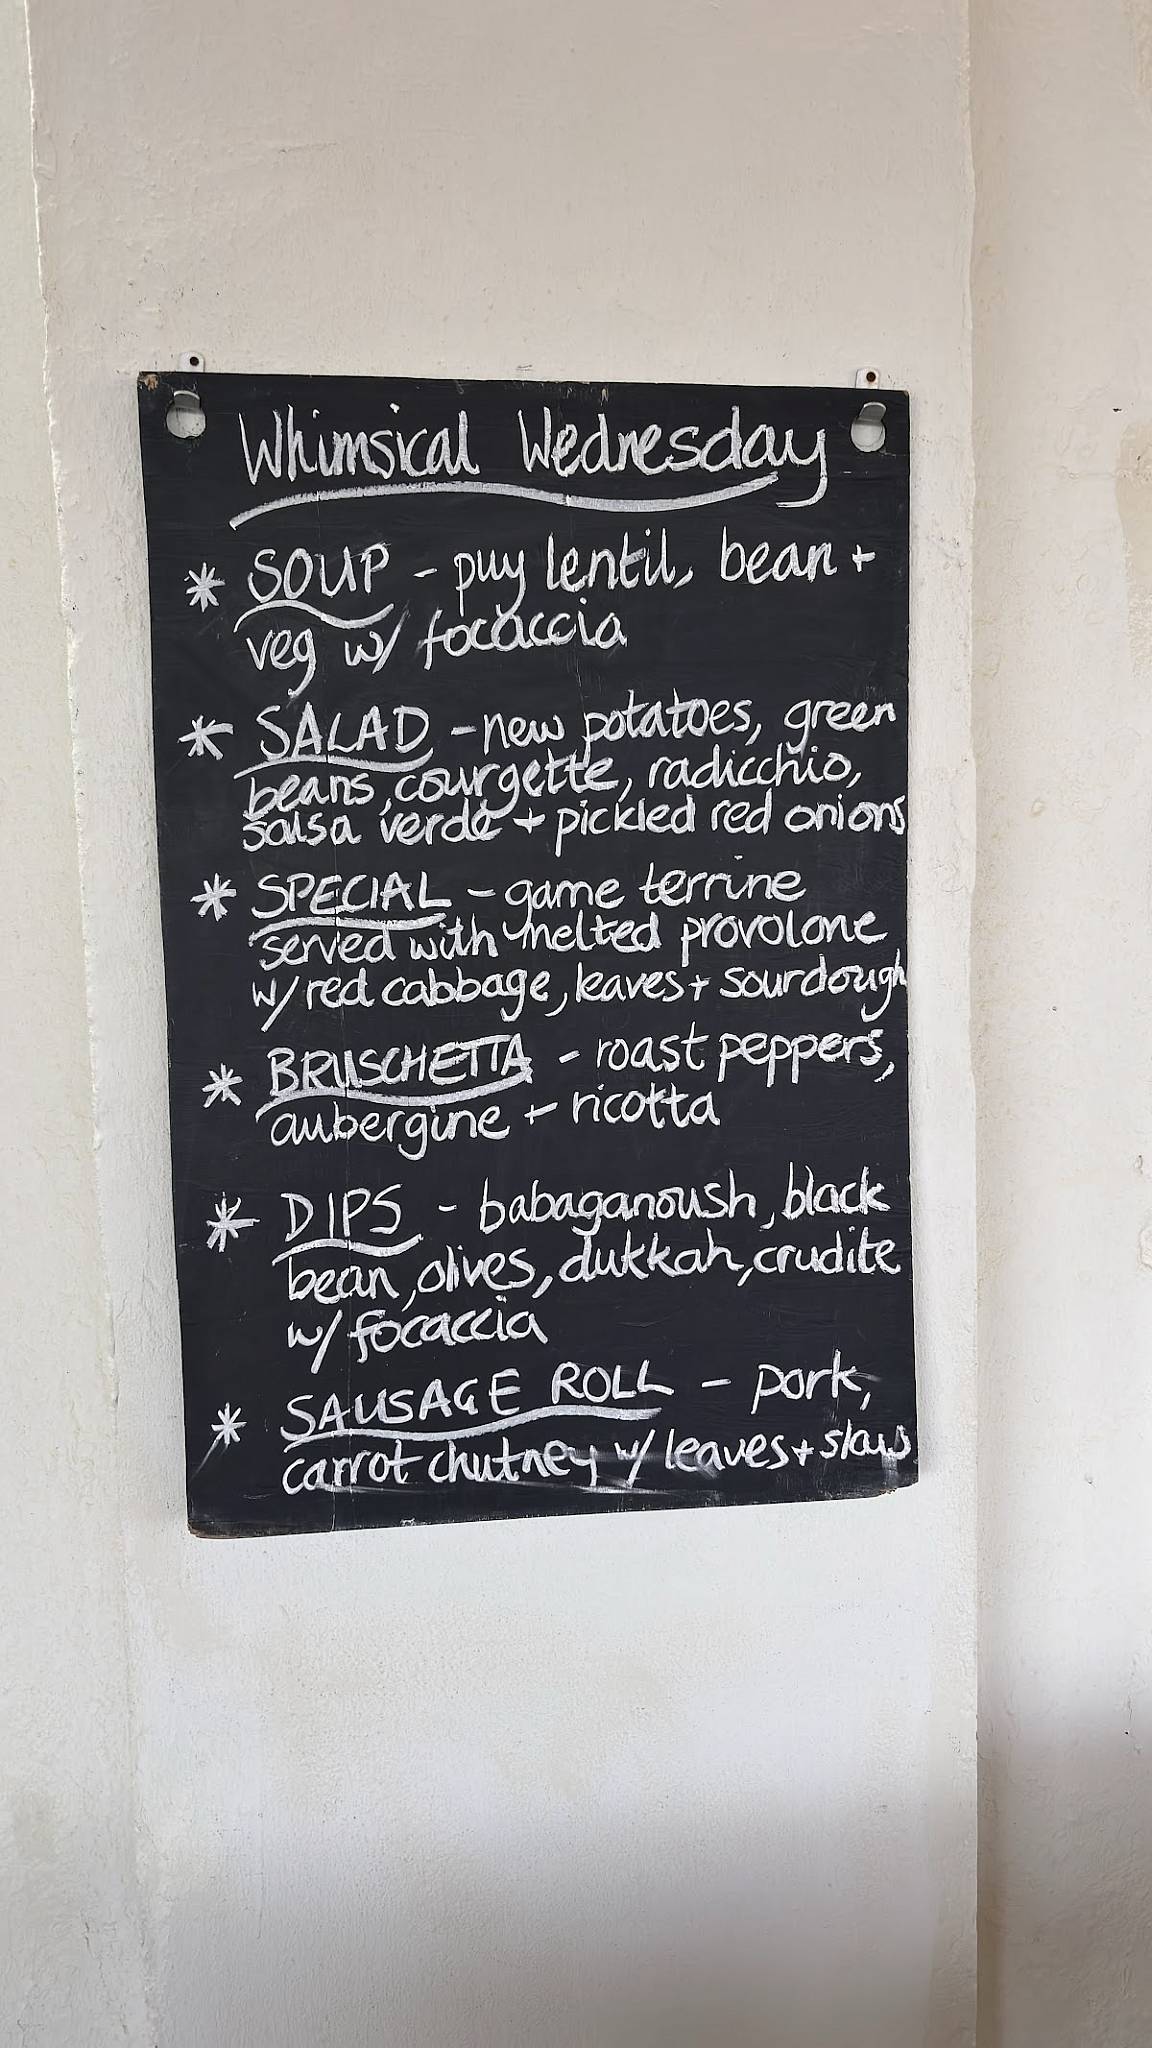 Whimsical Wednesday
* SOUP - puy lentil, bean +
veg w/ focaccia
* SALAD - new potatoes, green
beans, courgette, radicchio,
salsa verde + pickled red onions
* SPECIAL - game terrine
served with melted provolone
w/ red cabbage, leaves + sourdough
* BRUSCHETTA - roast peppers,
aubergine + ricotta
* DIPS - babaganoush, black
bean, olives, dukkah, crudite
w/ focaccia
* SAUSAGE ROLL - pork,
carrot chutney w/ leaves + slaws